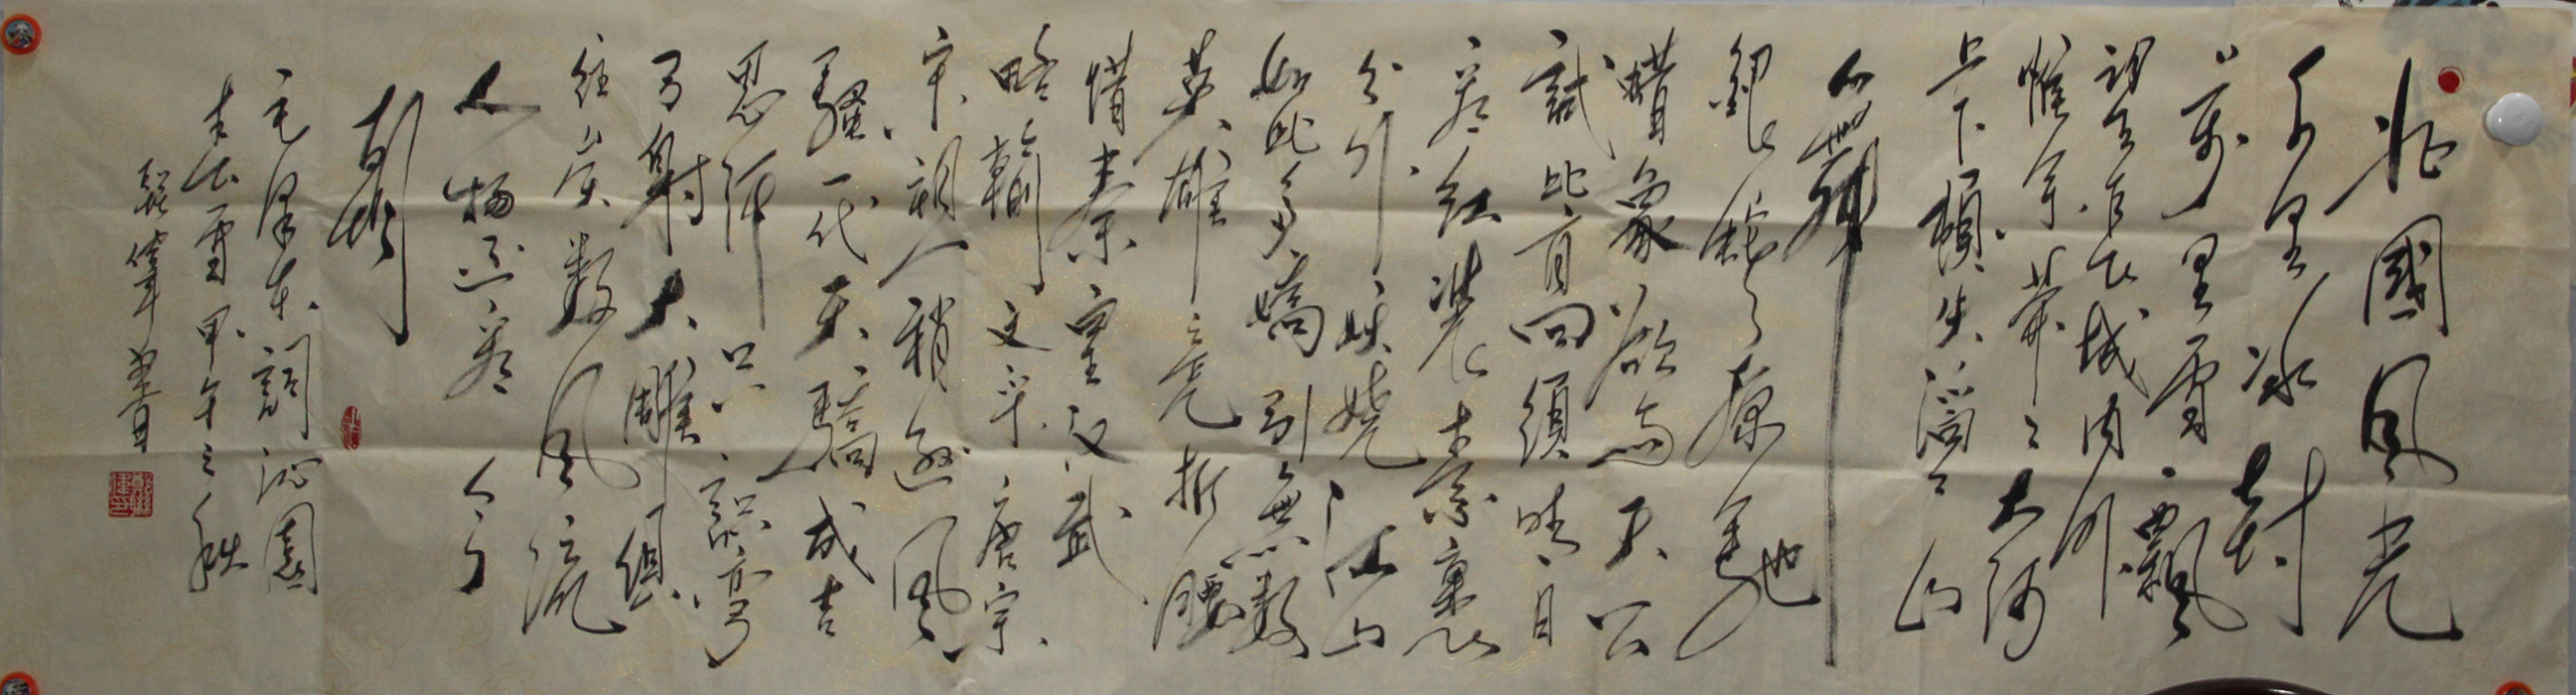 北國風光
千里冰封
萬里雪飄
望長城内外
惟餘莽々大河
上下頓失滔々山
舞
銀蛇原馳
蠟象欲與天公
試比高須晴日
看紅裝素裹
分外妖嬈江山
如此多嬌引無數
英雄竞折腰
惜秦皇漢武
略輸文采唐宗
宋祖稍遜風
騷一代天驕成吉
思汗只識彎
弓射大雕俱
往矣數風流
人物還看今
朝
毛澤東詞沁園
春雪甲午之秋